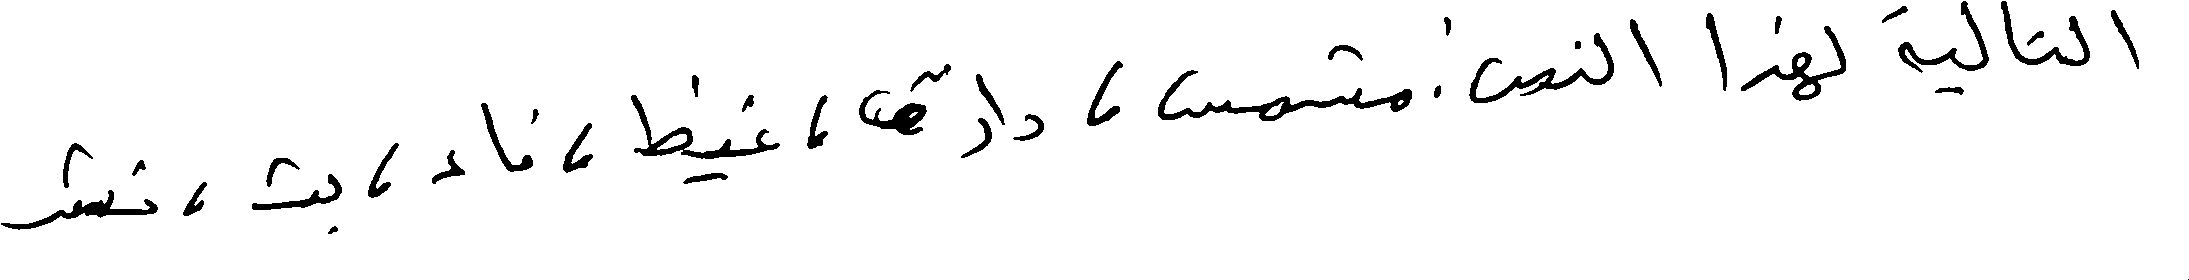 التالية لهذا النص: مشمس، دارت، غيظ، فاد، بث، نشر